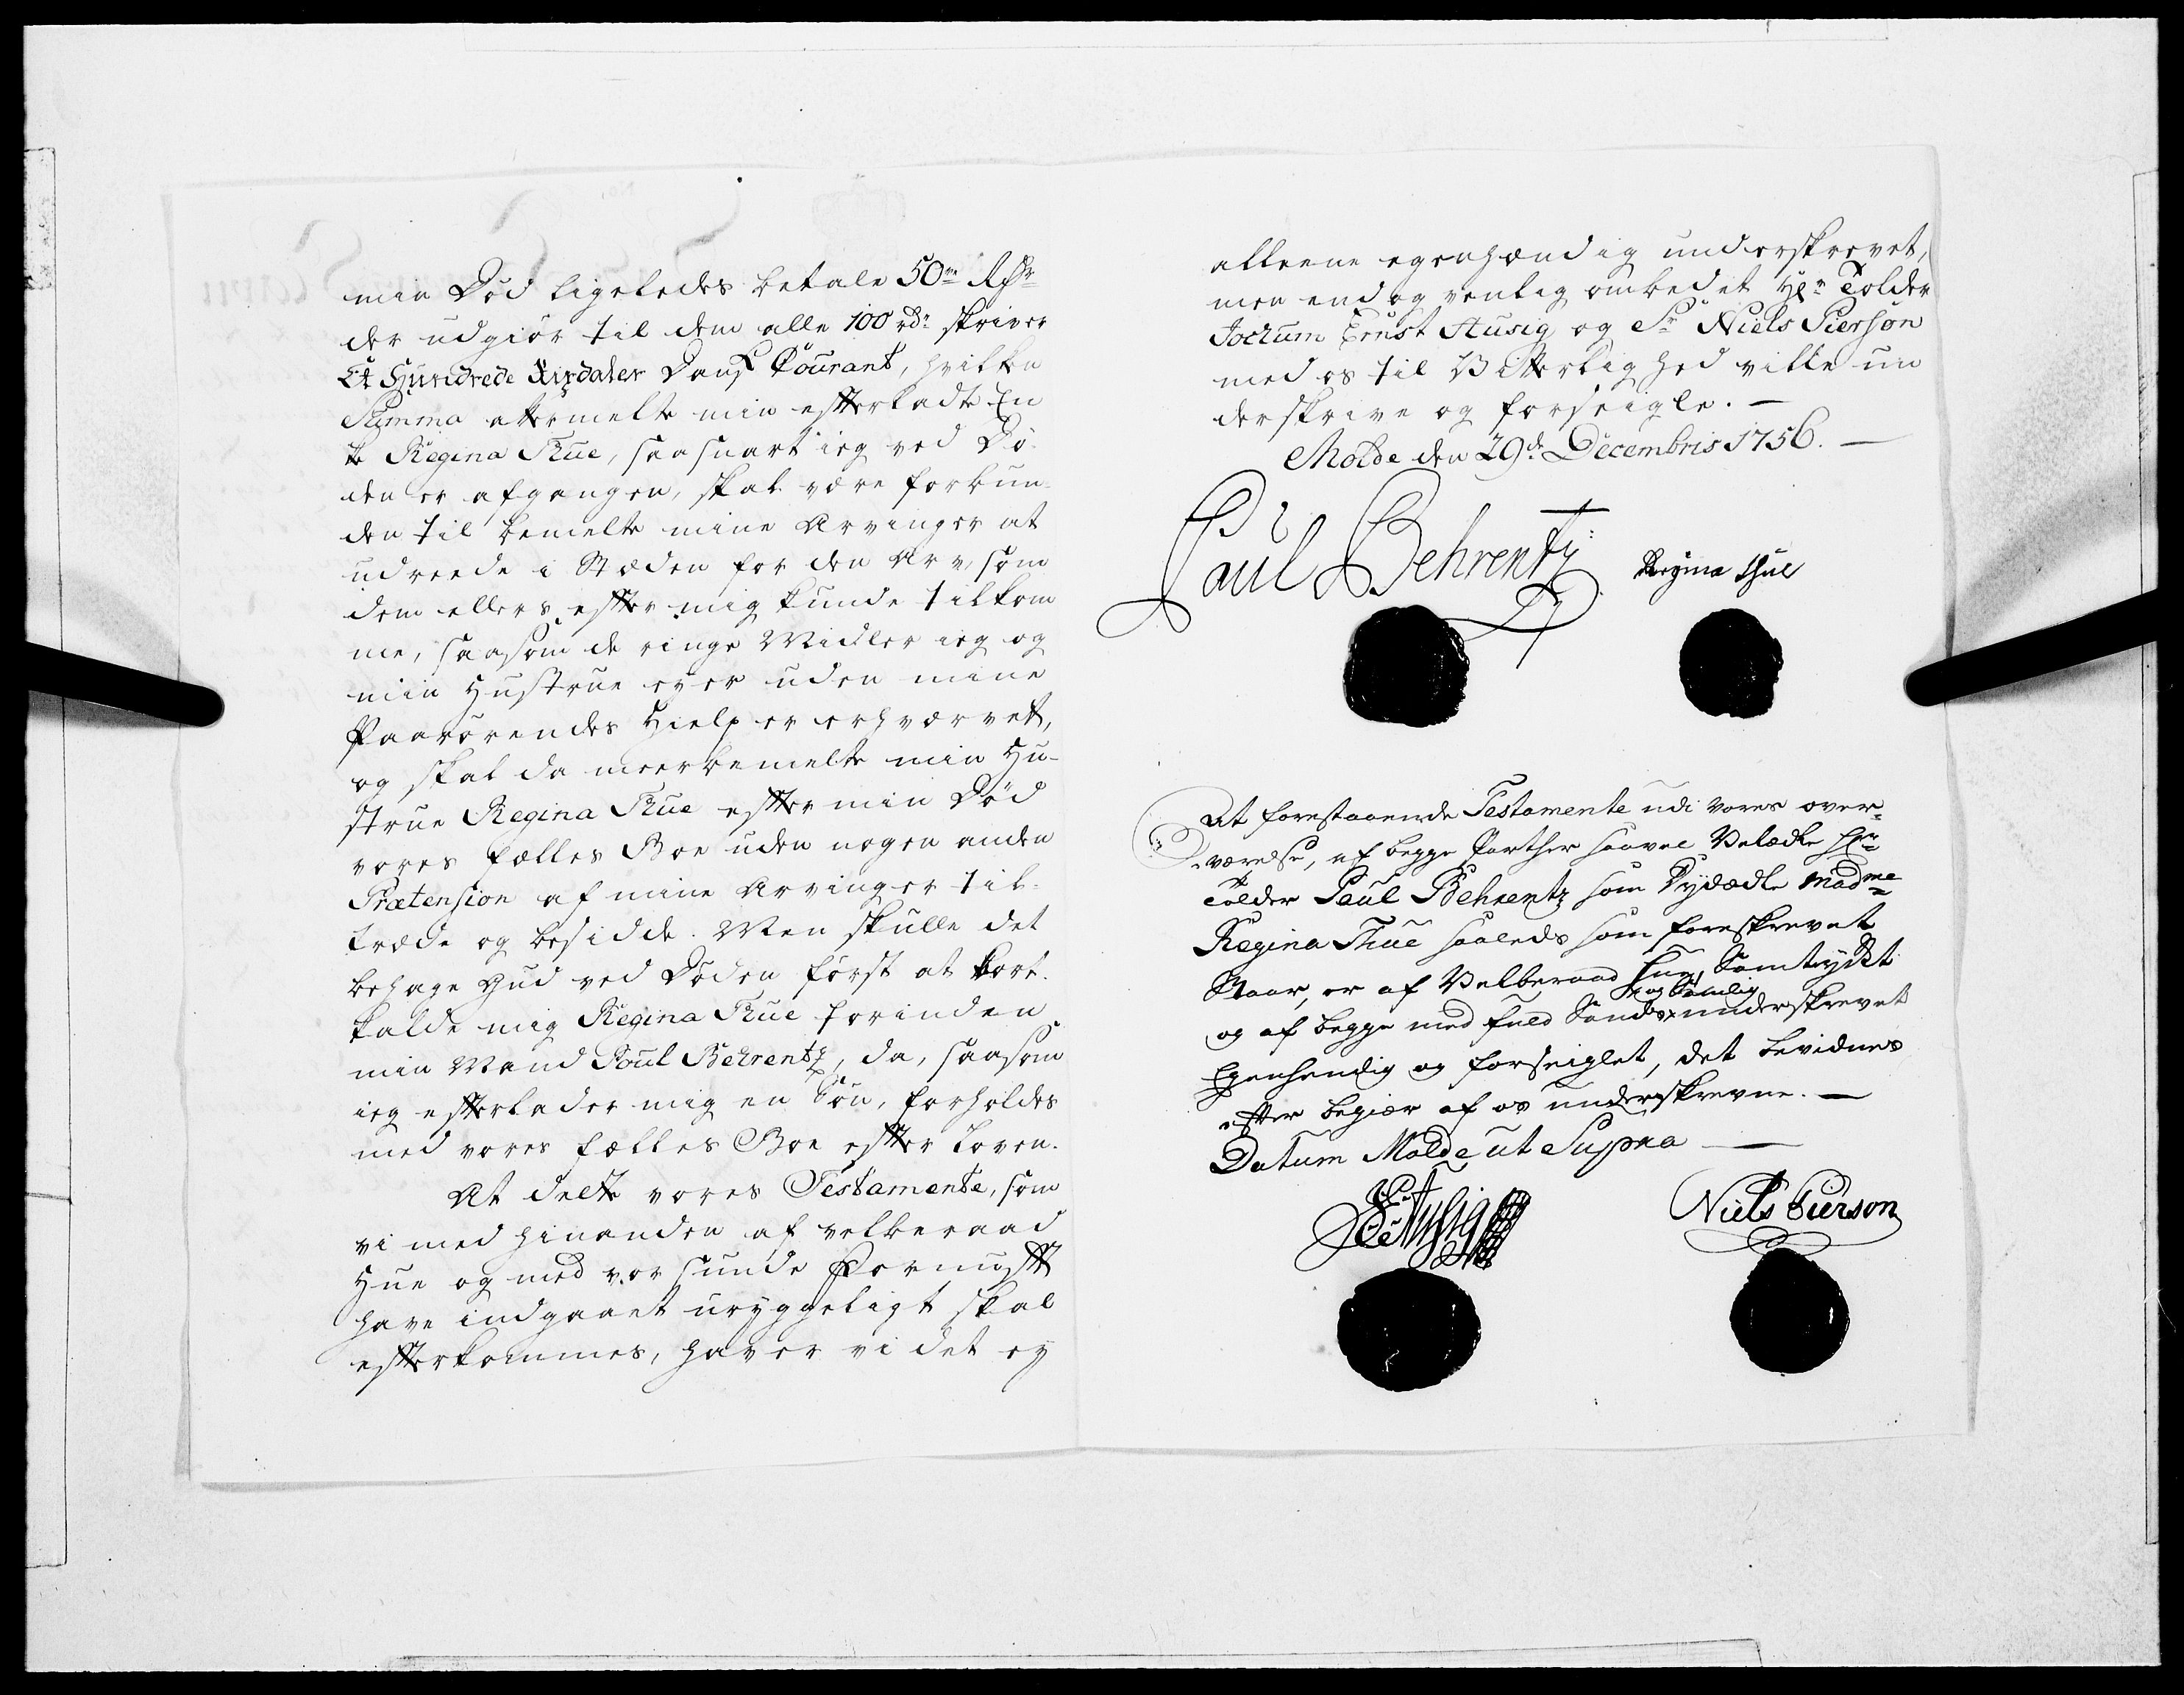 min Død ligeledes betale 50ve Rdr
der udgiør til dem alle 100 rdr skriver
Et Hundrede Rixdaler Dansk Courant, hvilken
Summa attermelte min efterladte En
ke Regina Thue, saasnart ieg ved Dø-
den er afgangen, skal være forbun-
den til bemelte mine Arvinger at
udreede i Stæden for den Arv, som
dem ellers efter mig kunde tilkom
me, saasom de ringe Midler ieg og
min Hustrue eyer uden mine
Paarørendes Hielp er erhværvet,
og skal da meerbemelte min Hu-
strue Regina Thue efter min Død
vores fælles Boe uden nogen anden
Prætension af mine Arvinger til-
træde og besidde. Men skulle det
behage Gud ved Døden først at bort-
kalde mig Regina Thue forinden
min Mand Poul Behrentz, da, saasom
ieg efterlader mig en Søn, forholdes
med vores fælles Boe efter Loven.
At dette vores Testamente, som
vi med hinanden af velberaad
Hue og med vor sunde Fornuft
have indgaaet uryggeligt skal
efterkommes, haver vi det ey
alleene egenhændig underskrevet,
men endog venlig ombedet Hr Tolder
Jochum Ernst Husig og Sr Niels Pierson
med os til Vitterlighed ville un
derskrive og forseigle. —
Molde den 29de Decembris 1756. —
Paul Behrentz Regina Thue
At forestaaende Testamente udi vores over-
værelse, af begge Parther saavel Velædle Hr
Tolder Paul Behrentz som Dydædle Madme
Regina Thue saaleds som foreskrevet
Staar, er af Velberaad Hue, Samtyckt
og Samlig
og af begge med fuld Sands underskrevet
Egenhendig og forseiglet, det bevidnes
efter begiær af os underskrevne. —
Datum Molde ut Supra —
JE Husig Niels Pierson